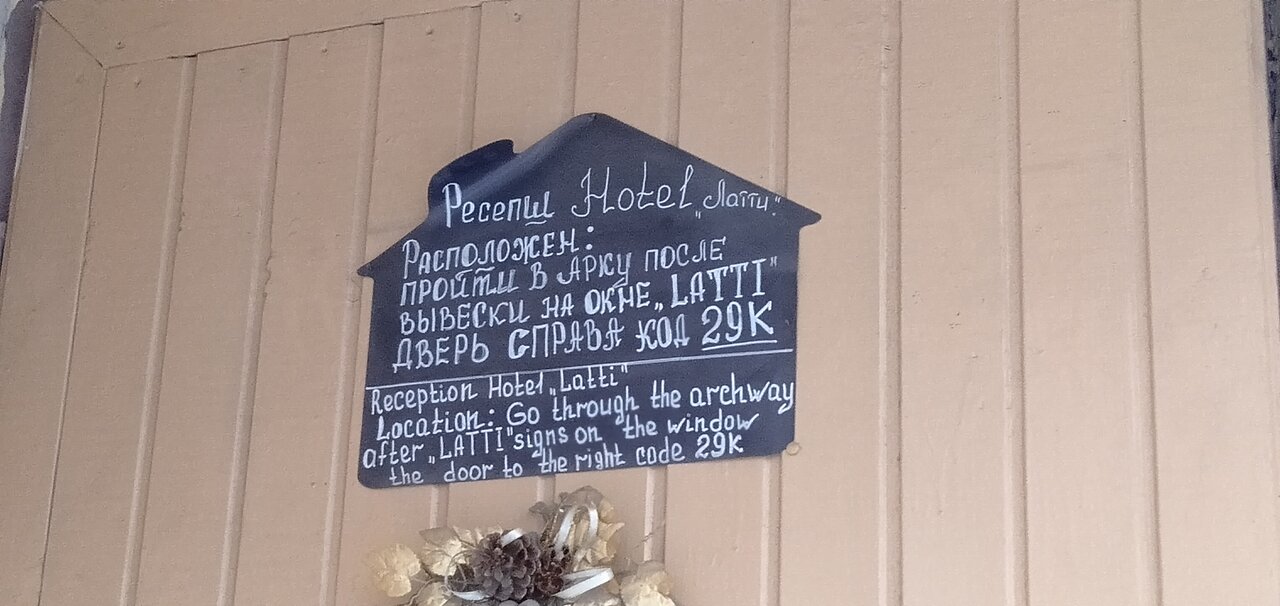 Ресепш Hotel „Латти“
РАСПОЛОЖЕН:
ПРОЙТИ В АРКУ ПОСЛЕ
ВЫВЕСКИ НА ОКНЕ „LATTI"
ДВЕРЬ СПРАВА КОД 29К
Reception Hotel „Latti"
Location: Go through the archway
after „LATTI" signs on the window
the door to the right code 29K